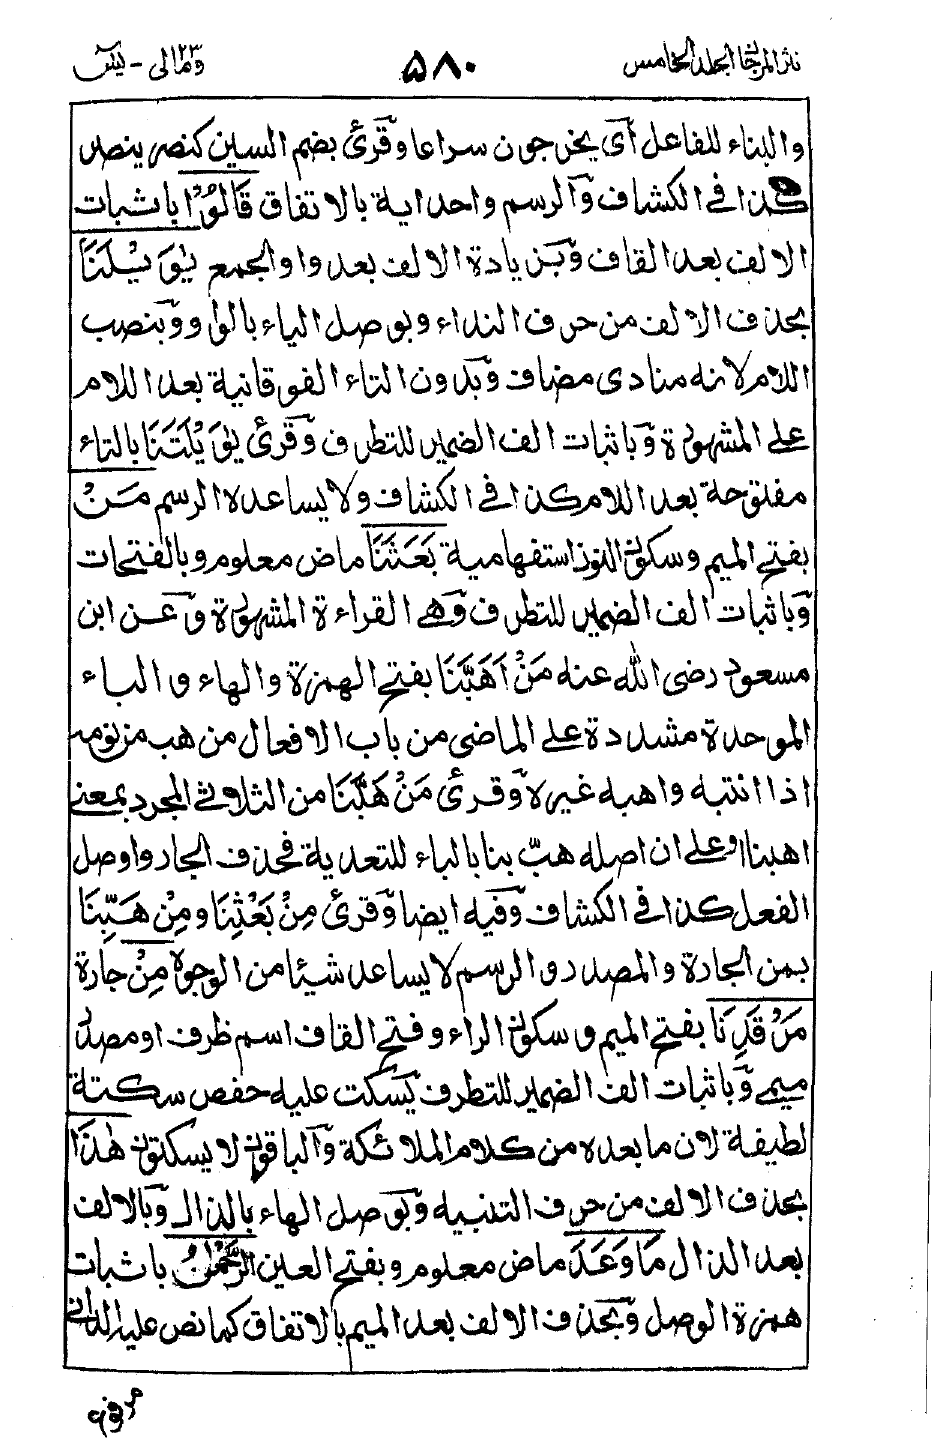 نثر المرجان المجلد الخامس ٥٨٠ ومالی ۲۳ - یٰسٓ
والبناء للفاعل اى يخرجون سراعا وقرئ بضم السين كنصر ينصر
كذا فى الكشاف والرسم واحداية بالاتفاق قَالُوْا باثبات
الالف بعد القاف وبزيادة الالف بعد واو الجمع يٰوَيْلَنَا
بحذف الالف من حرف النداء وبوصل الياء بالواو وبنصب
اللام لانه منادى مضاف وبدون التاء الفوقانية بعد اللام
على المشهورة وباثبات الف الضمير للتطرف وقرئ يٰوَيْلَتَنَا بالتاء
مفتوحة بعد اللام كذا فى الكشاف ولا يساعده الرسم مَنْ
بفتح الميم وسكون النون استفهامية بَعَثَنَا ماض معلوم وبالفتحات
وباثبات الف الضمير للتطرف وهى القراءة المشهورة وعن ابن
مسعود رضى الله عنه مَنْ اَهَبَّنَا بفتح الهمزة والهاء والباء
الموحدة مشددة على الماضى من باب الافعال من هب من نومه
اذا انتبه واهبه غيره وقرئ مَنْ هَبَّنَا من الثلاثى المجرد بمعنى
اهبنا او على ان اصله هبّ بنا بالباء للتعدية فحذف الجار واوصل
الفعل كذا فى الكشاف وفيه ايضا وقرئ مِنْ بَعْثِنَا ومِنْ هَبِّنَا
بمن الجارة والمصدر والرسم لا يساعد شيئا من الوجوه مِنْ جارة
مَرْقَدِنَا بفتح الميم وسكون الراء وفتح القاف اسم ظرف او مصدر
ميمى وباثبات الف الضمير للتطرف يسكت عليه حفص سكتة
لطيفة لان ما بعده من كلام الملائكة والباقون لا يسكتون هٰذَا
بحذف الالف من حرف التنبيه وبوصل الهاء بالذال وبالالف
بعد الذال مَا وَعَدَ ماض معلوم وبفتح العين الرَّحْمٰنُ باثبات
همزة الوصل وبحذف الالف بعد الميم بالاتفاق كما نص عليه الدانى